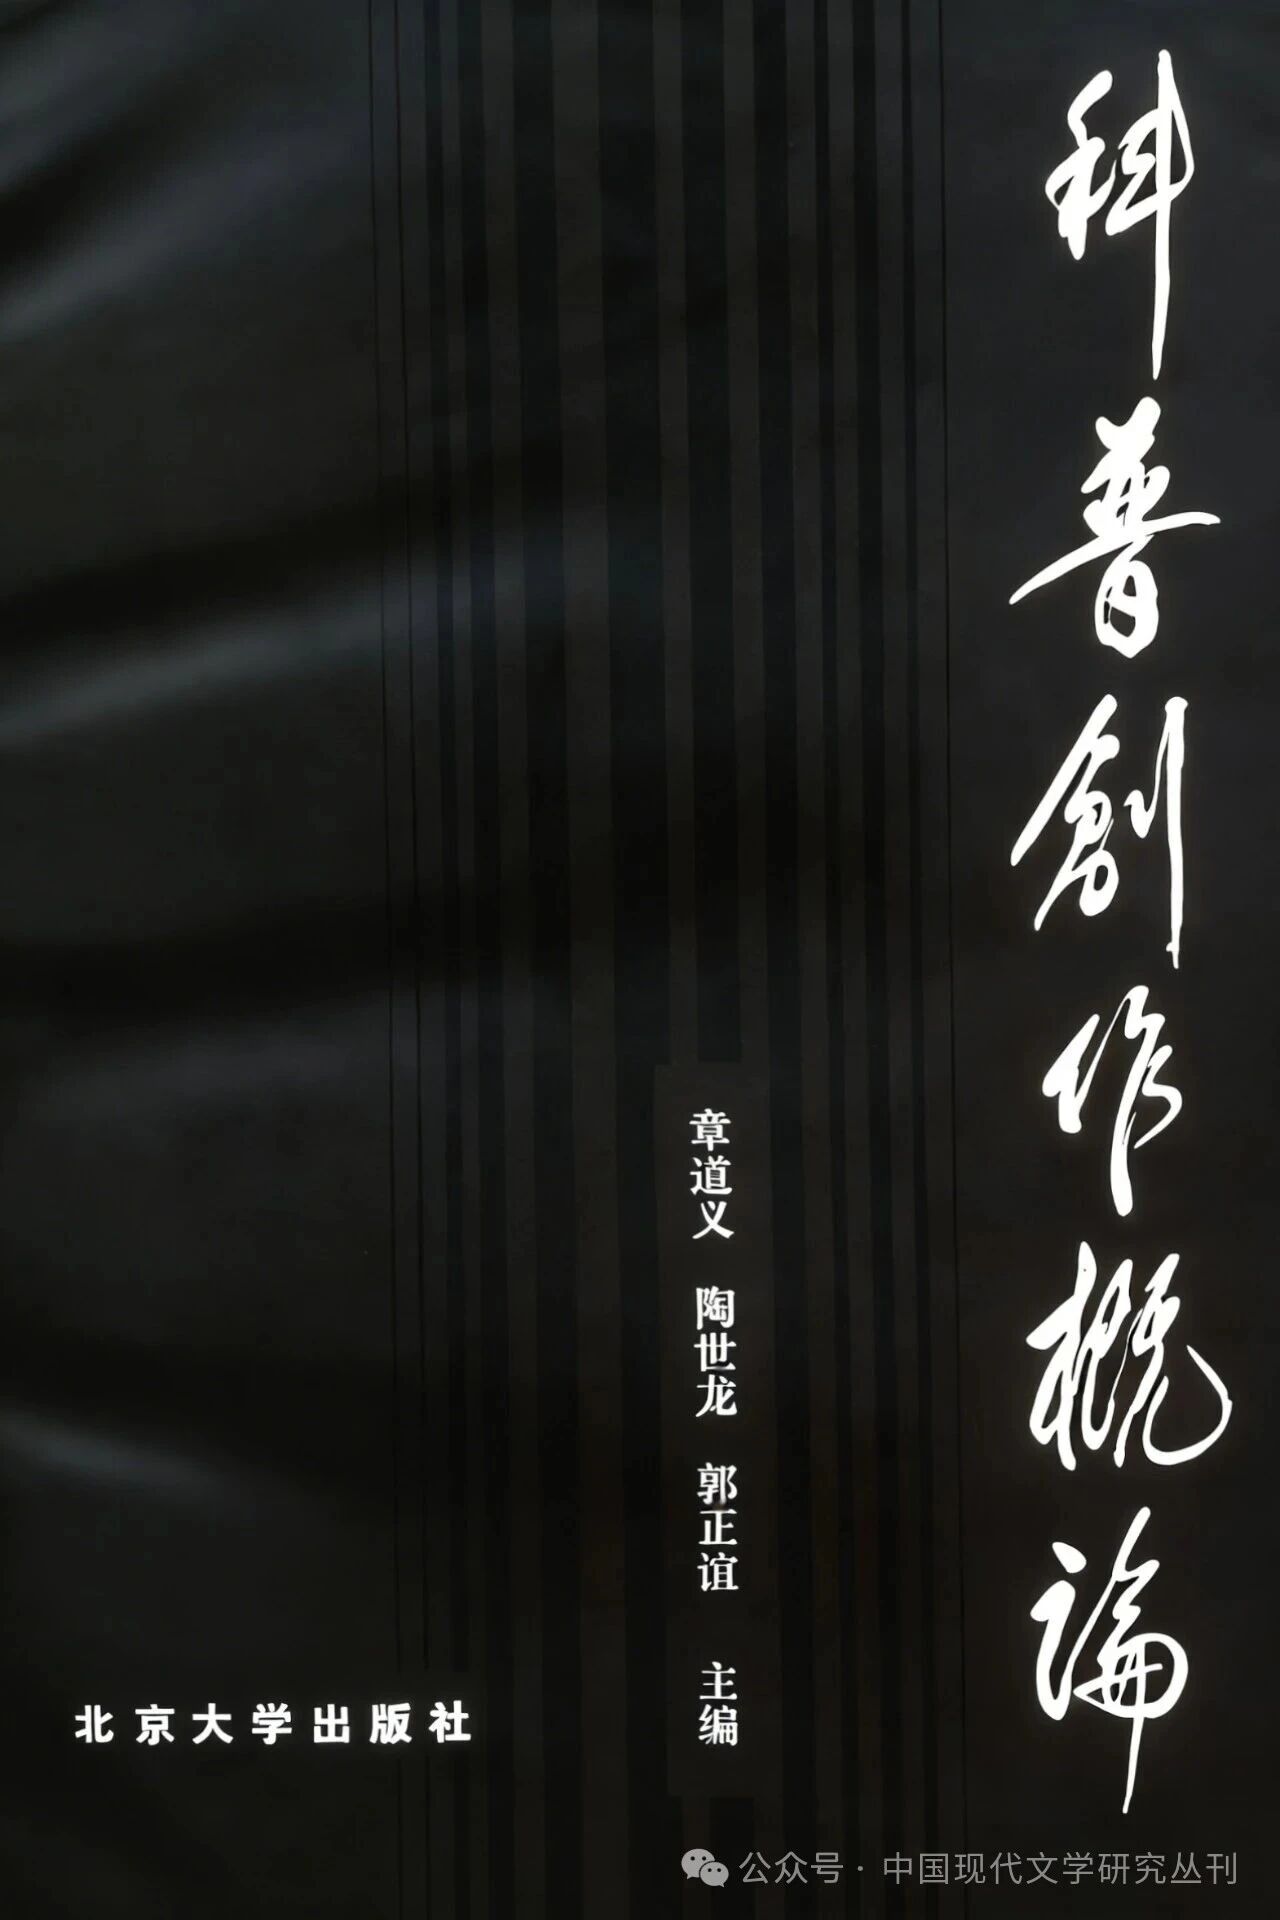 科普創作概論
章道义 陶世龙 郭正谊 主编
北京大学出版社
公众号·中国现代文学研究丛刊